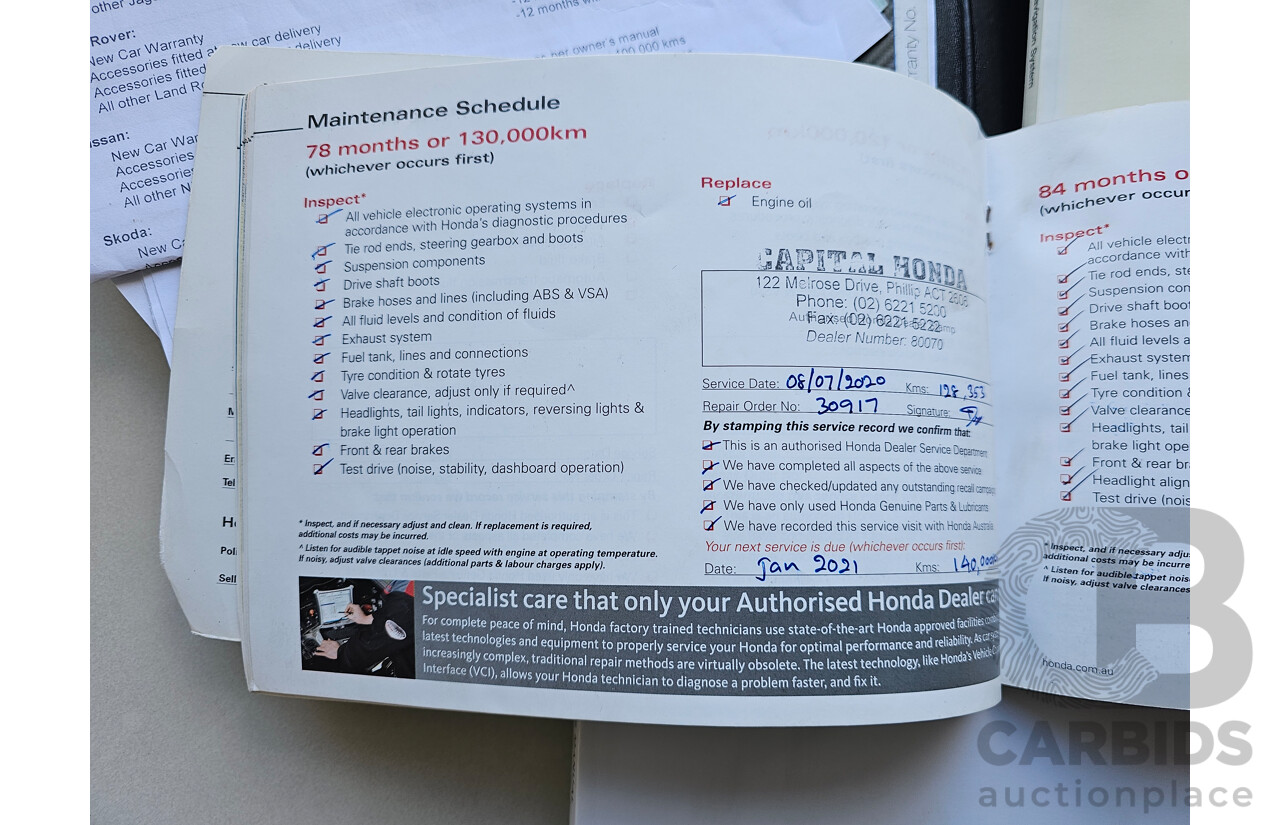 other Jag
-12 months w
Rover:
New Car Warranty
Accessories fitted at new car delivery
Accessories fitted delivery
All other Land Ro
per owner's manual
100,000 kms
issan:
New Car War
Accessories
Accessories
All other N
Skoda:
New Ca
Acce
ranty No.
Navigation System
Maintenance Schedule
78 months or 130,000km
(whichever occurs first)
Inspect*
All vehicle electronic operating systems in
accordance with Honda's diagnostic procedures
Tie rod ends, steering gearbox and boots
Suspension components
Drive shaft boots
Brake hoses and lines (including ABS & VSA)
All fluid levels and condition of fluids
Exhaust system
Fuel tank, lines and connections
Tyre condition & rotate tyres
Valve clearance, adjust only if required^
Headlights, tail lights, indicators, reversing lights &
brake light operation
Front & rear brakes
Test drive (noise, stability, dashboard operation)
* Inspect, and if necessary adjust and clean. If replacement is required,
additional costs may be incurred.
^ Listen for audible tappet noise at idle speed with engine at operating temperature.
If noisy, adjust valve clearances (additional parts & labour charges apply).
Replace
Engine oil
CAPITAL HONDA
122 Melrose Drive, Phillip ACT 2606
Phone: (02) 6221 5200
Fax: (02) 6221 5222
Dealer Number: 80070
Service Date: 08/07/2020 Kms: 128,353
Repair Order No: 30917 Signature:
By stamping this service record we confirm that:
This is an authorised Honda Dealer Service Department
We have completed all aspects of the above service
We have checked/updated any outstanding recall campaig
We have only used Honda Genuine Parts & Lubricants
We have recorded this service visit with Honda Australia
Your next service is due (whichever occurs first):
Date: Jan 2021 Kms: 140,000
Specialist care that only your Authorised Honda Dealer ca
For complete peace of mind, Honda factory trained technicians use state-of-the-art Honda approved facilities
latest technologies and equipment to properly service your Honda for optimal performance and reliability. As
increasingly complex, traditional repair methods are virtually obsolete. The latest technology, like Honda's Vehicle
Interface (VCI), allows your Honda technician to diagnose a problem faster, and fix it.
84 months o
(whichever occur
Inspect*
All vehicle electr
accordance with
Tie rod ends, ste
Suspension com
Drive shaft boot
Brake hoses and
All fluid levels a
Exhaust system
Fuel tank, lines
Tyre condition &
Valve clearance
Headlights, tail
brake light ope
Front & rear br
Headlight align
Test drive (nois
* Inspect, and if necessary adjus
additional costs may be incurre
^ Listen for audible tappet nois
If noisy, adjust valve clearances
honda.com.au
M
En
Tel
H
Poli
Sell
CARBIDS
auctionplace